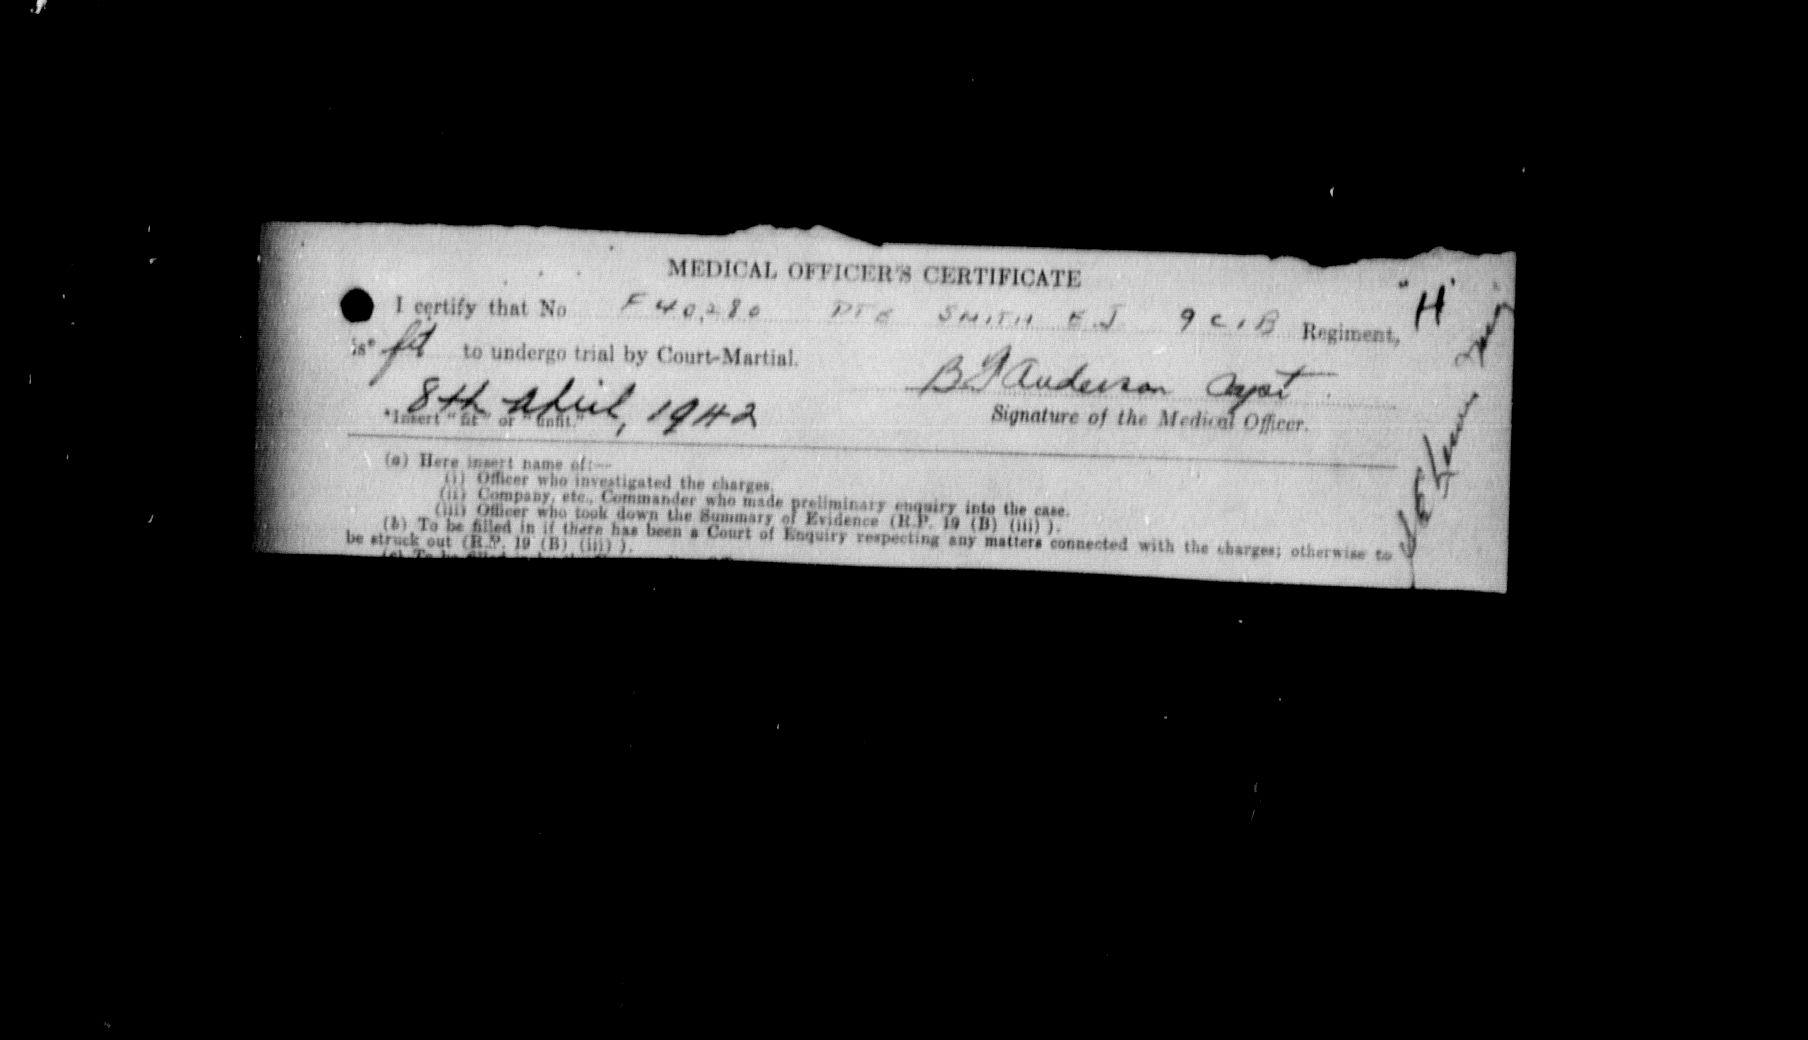 MEDICAL OFFICER'S CERTIFICATE
"H"
I certify that No F 40,280 PTE SMITH E.J 9 C.I.B Regiment,
is* fit to undergo trial by Court-Martial.
B Anderson Capt
8th April, 1942
Signature of the Medical Officer.
*Insert "fit" or "unfit."
(a) Here insert name of:—
(i) Officer who investigated the charges.
(ii) Company, etc., Commander who made preliminary enquiry into the case.
(iii) Officer who took down the Summary of Evidence (R.P. 19 (B) (iii) ).
(b) To be filled in if there has been a Court of Enquiry respecting any matters connected with the charges; otherwise to
be struck out (R.P. 19 (B) (iii) ).